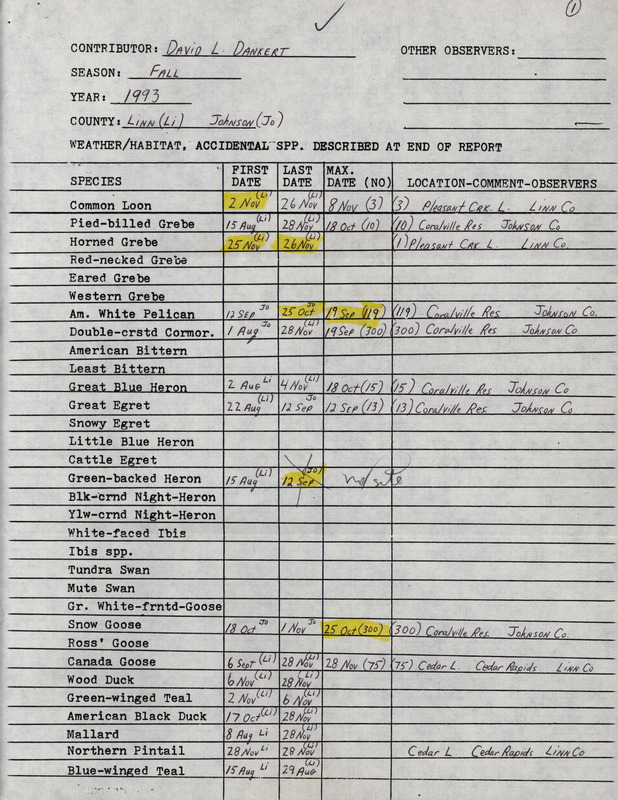 ①
✓
CONTRIBUTOR: DAVID L. DANKERT OTHER OBSERVERS:
SEASON: FALL
YEAR: 1993
COUNTY: LINN (Li) JOHNSON (Jo)
WEATHER/HABITAT, ACCIDENTAL SPP. DESCRIBED AT END OF REPORT
SPECIES FIRST DATE LAST DATE MAX. DATE (NO) LOCATION-COMMENT-OBSERVERS
Common Loon 2 Nov (Li) 26 Nov (Li) 8 Nov (3) (3) Pleasant Crk. L. LINN Co
Pied-billed Grebe 15 Aug (Li) 28 Nov (Li) 18 Oct (10) (10) Coralville Res JOHNSON Co.
Horned Grebe 25 Nov (Li) 26 Nov (Li) (1) Pleasant Crk. L. LINN Co.
Red-necked Grebe
Eared Grebe
Western Grebe
Am. White Pelican 12 SEP Jo 25 Oct Jo 19 Sep (119) (119) Coralville Res JOHNSON Co.
Double-crstd Cormor. 1 Aug Jo 28 Nov (Li) 19 Sep (300) (300) Coralville Res JOHNSON Co
American Bittern
Least Bittern
Great Blue Heron 2 Aug Li 4 Nov (Li) 18 Oct (15) (15) Coralville Res JOHNSON Co
Great Egret 22 Aug (Li) 12 Sep Jo 12 Sep (13) (13) Coralville Res JOHNSON Co
Snowy Egret
Little Blue Heron
Cattle Egret
Green-backed Heron 15 Aug (Li) 12 Sep (Jo)
Blk-crnd Night-Heron
Ylw-crnd Night-Heron
White-faced Ibis
Ibis spp.
Tundra Swan
Mute Swan
Gr. White-frntd-Goose
Snow Goose 18 Oct Jo 1 Nov Jo 25 Oct (300) (300) Coralville Res. JOHNSON Co.
Ross' Goose
Canada Goose 6 Sept (Li) 28 Nov (Li) 28 Nov (75) (75) Cedar L. Cedar Rapids LINN Co
Wood Duck 6 Nov (Li) 28 Nov (Li)
Green-winged Teal 2 Nov (Li) 6 Nov (Li)
American Black Duck 17 Oct (Li) 28 Nov (Li)
Mallard 8 Aug Li 28 Nov (Li)
Northern Pintail 28 Nov Li 28 Nov (Li) Cedar L. Cedar Rapids LINN Co
Blue-winged Teal 15 Aug Li 29 Aug (Li)